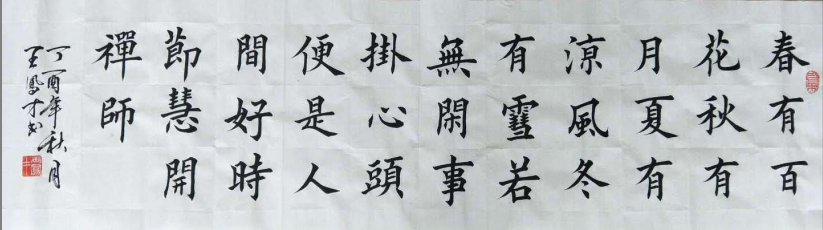 春有百
花秋有
月夏有
涼風冬
有雪若
無閑事
掛心頭
便是人
間好時
節慧開
禪師
丁酉年秋月
王鳳才书